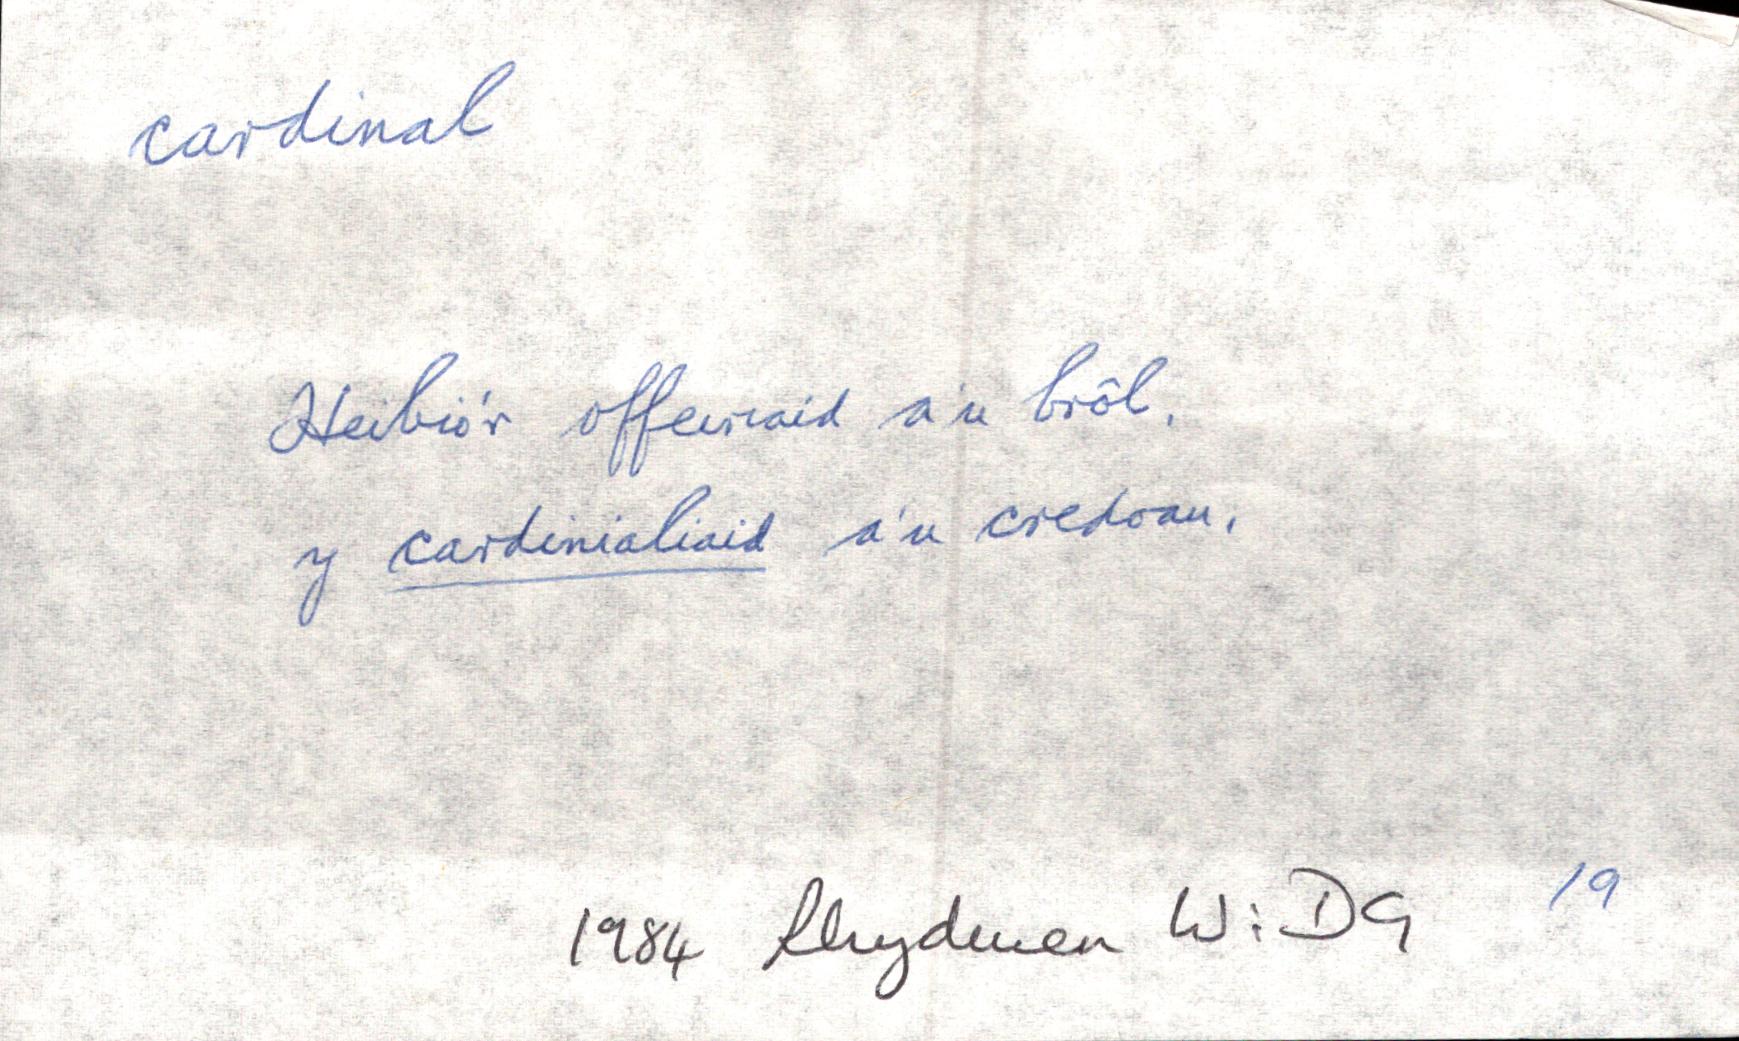 cardinal
Heibio'r offeiriaid a'u brôl,
y cardinialiaid a'u credoau,
1984 Rhydwen W: DG 19